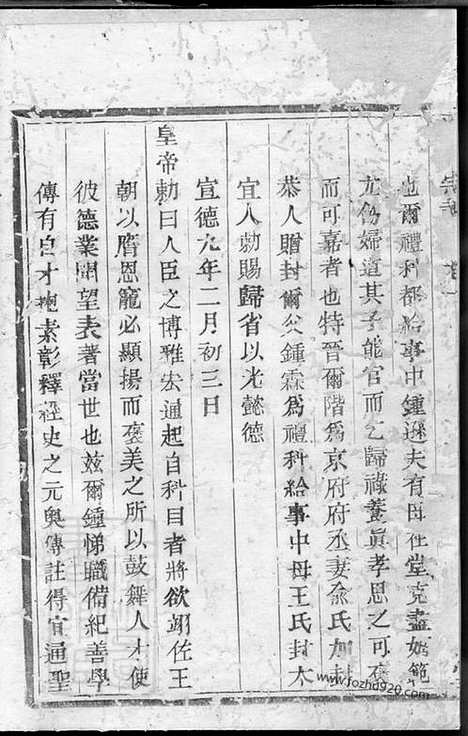 也爾禮科都給事中鍾遜夫有母在堂克盡姆範
尤傷婦道其子能官而乞歸祿養眞孝思之可
而可嘉者也特晉爾階爲京府府丞妻俞氏加封
恭人贈封爾父鍾霖爲禮科給事中母王氏封太
宜人勑賜歸省以光懿德
宣德九年二月初三日
皇帝勅曰人臣之博雅宏通起自科目者將欲翊佐王
朝以膺恩寵必顯揚而褒美之所以鼓舞人才使
彼德業聞望表著當世也兹爾鍾悌職備紀善學
傳有自才抱素彰釋經史之元奧傳註得宜通聖
www.fozhu920.com